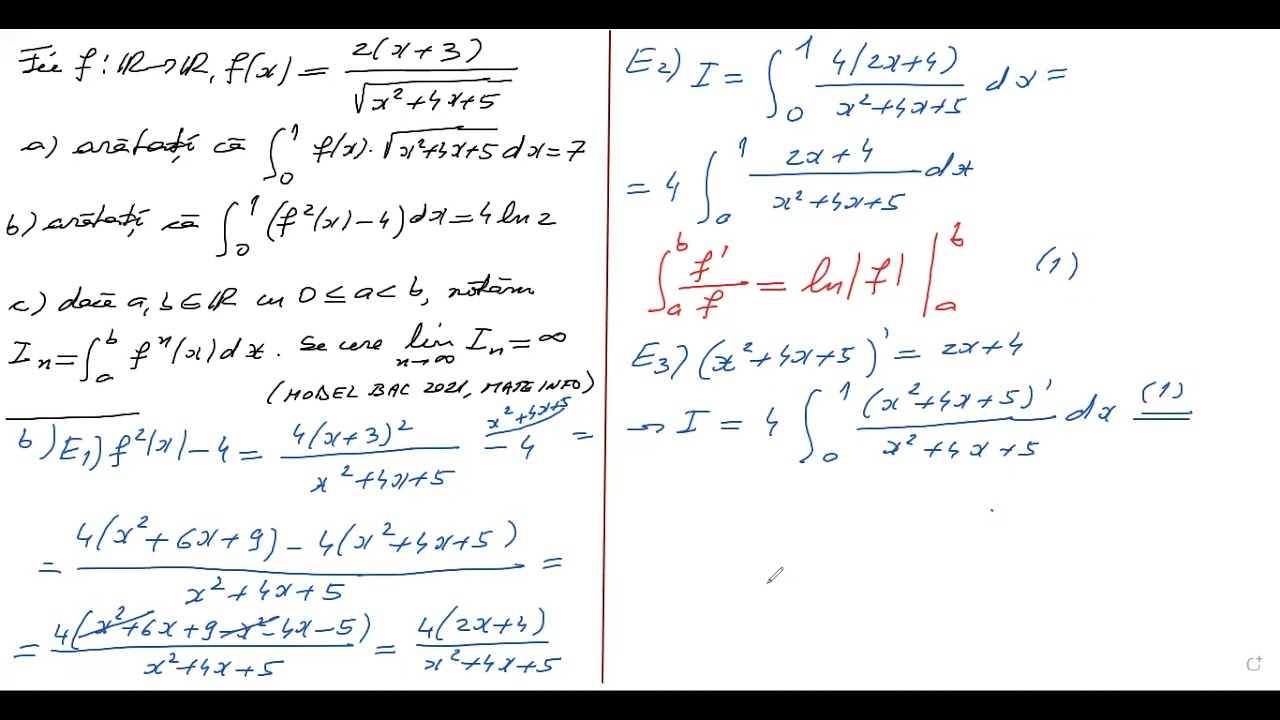 Fie f: ℝ→ℝ, f(x) = 2(x+3) / √(x²+4x+5)
a) arătați că ∫₀¹ f(x)·√(x²+4x+5) dx = 7
b) arătați că ∫₀¹ (f²(x) − 4) dx = 4 ln 2
c) dacă a, b ∈ ℝ cu 0 ≤ a < b, notăm
Iₙ = ∫ₐᵇ fⁿ(x) dx. Se cere lim n→∞ Iₙ = ∞
(MODEL BAC 2021, MATE INFO)
b) E₁) f²(x) − 4 = 4(x+3)² / (x²+4x+5) − ^(x²+4x+5) 4 =
= (4(x²+6x+9) − 4(x²+4x+5)) / (x²+4x+5) =
= 4(x²+6x+9−x²−4x−5) / (x²+4x+5) = 4(2x+4) / (x²+4x+5)
E₂) I = ∫₀¹ 4(2x+4) / (x²+4x+5) dx =
= 4 ∫₀¹ (2x+4) / (x²+4x+5) dx
∫ₐᵇ f'/f = ln|f| |ₐᵇ (1)
E₃) (x²+4x+5)' = 2x+4
→ I = 4 ∫₀¹ (x²+4x+5)' / (x²+4x+5) dx =⁽¹⁾